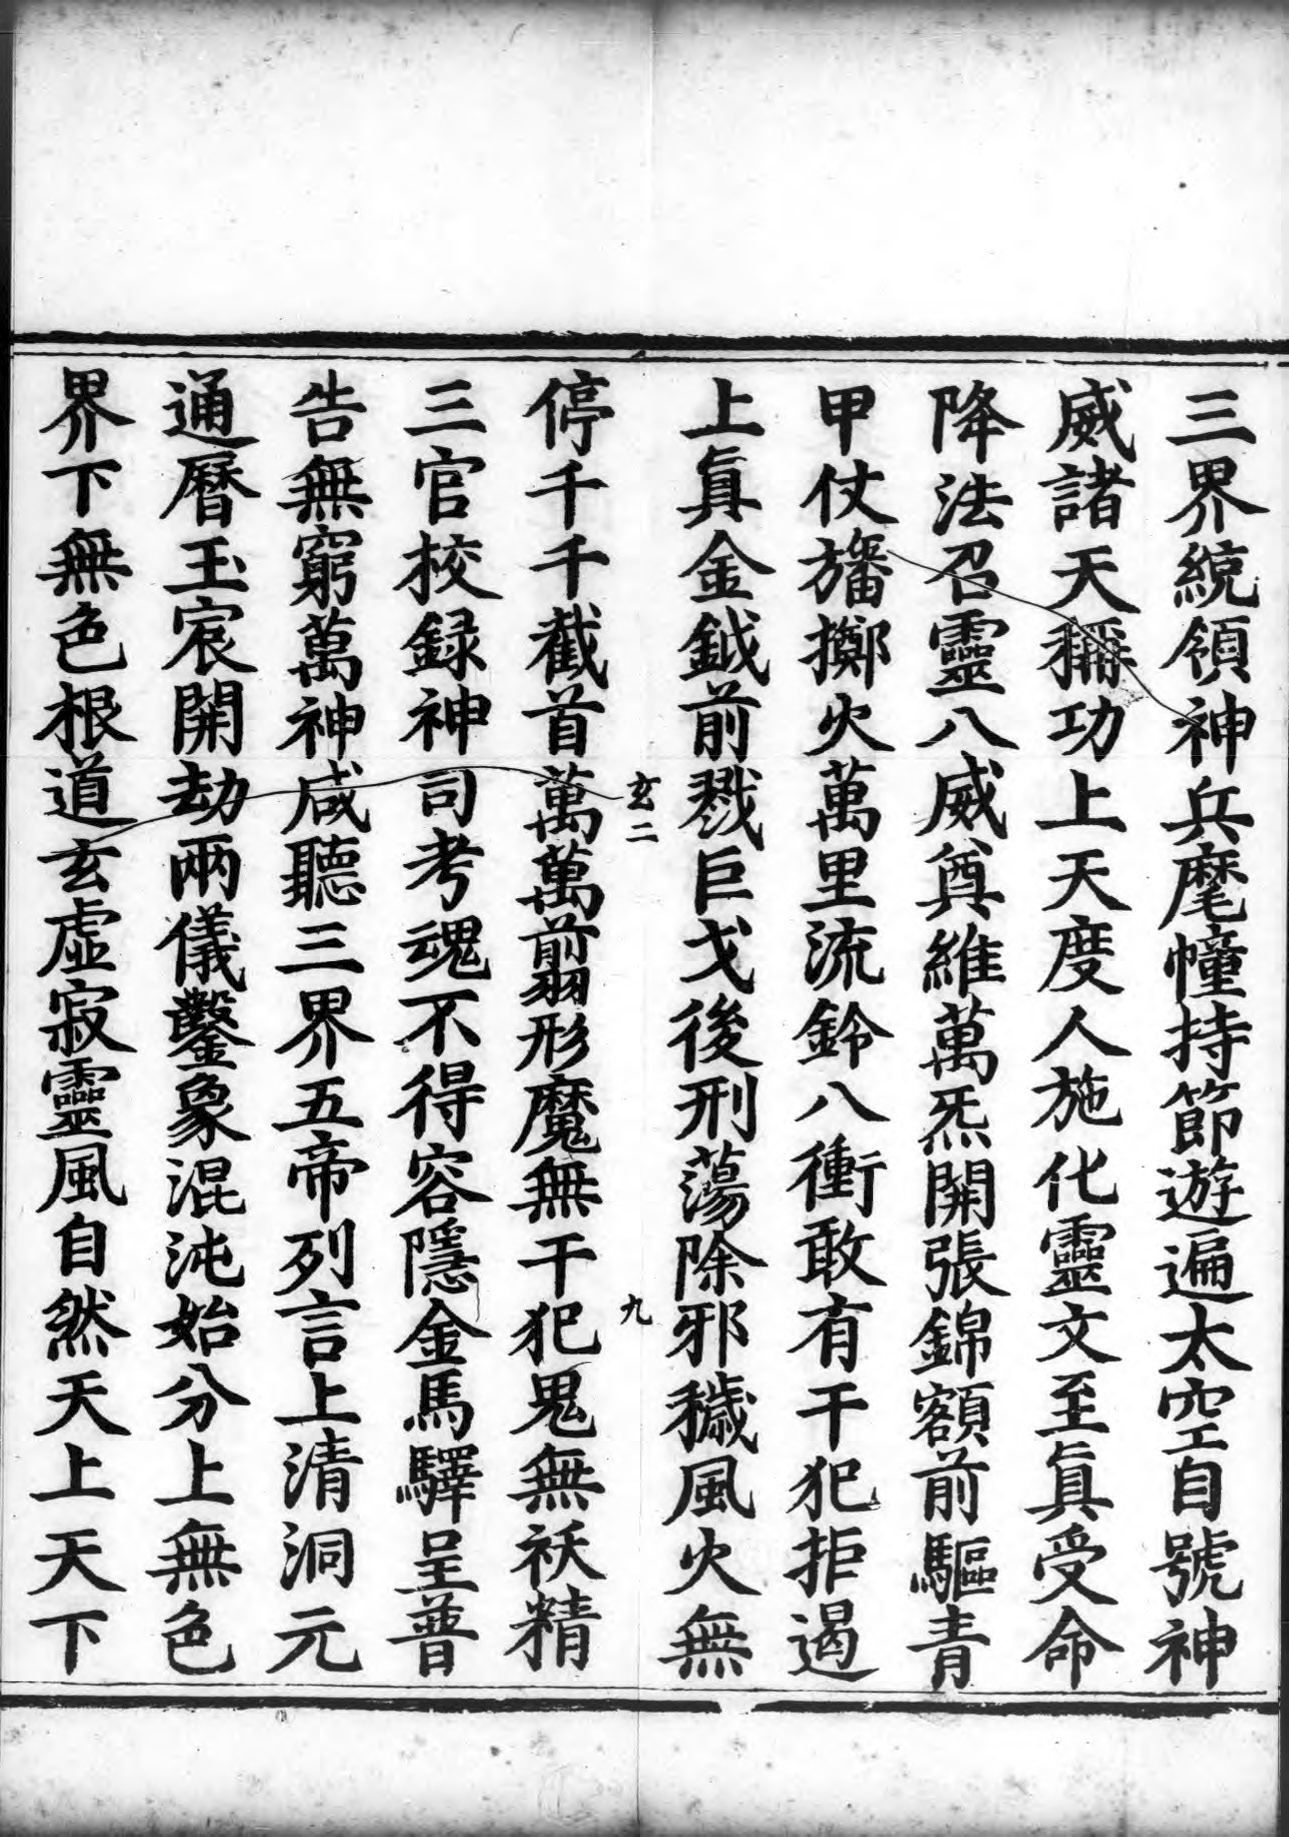 三界統領神兵麾幢持節遊遍太空自號神
威諸天稱功上天度人施化靈文至眞受命
降法召靈八威眞維萬炁開張錦額前驅青
甲仗旛擲火萬里流鈴八衝敢有干犯拒遏
上眞金鉞前戮巨戈後刑蕩除邪穢風火無
玄二
九
停千千截首萬萬翦形魔無干犯鬼無祅精
三官校録神司考魂不得容隱金馬驛呈普
告無窮萬神咸聽三界五帝列言上清洞元
通曆玉宸開劫兩儀鑿象混沌始分上無色
界下無色根道玄虛寂靈風自然天上天下